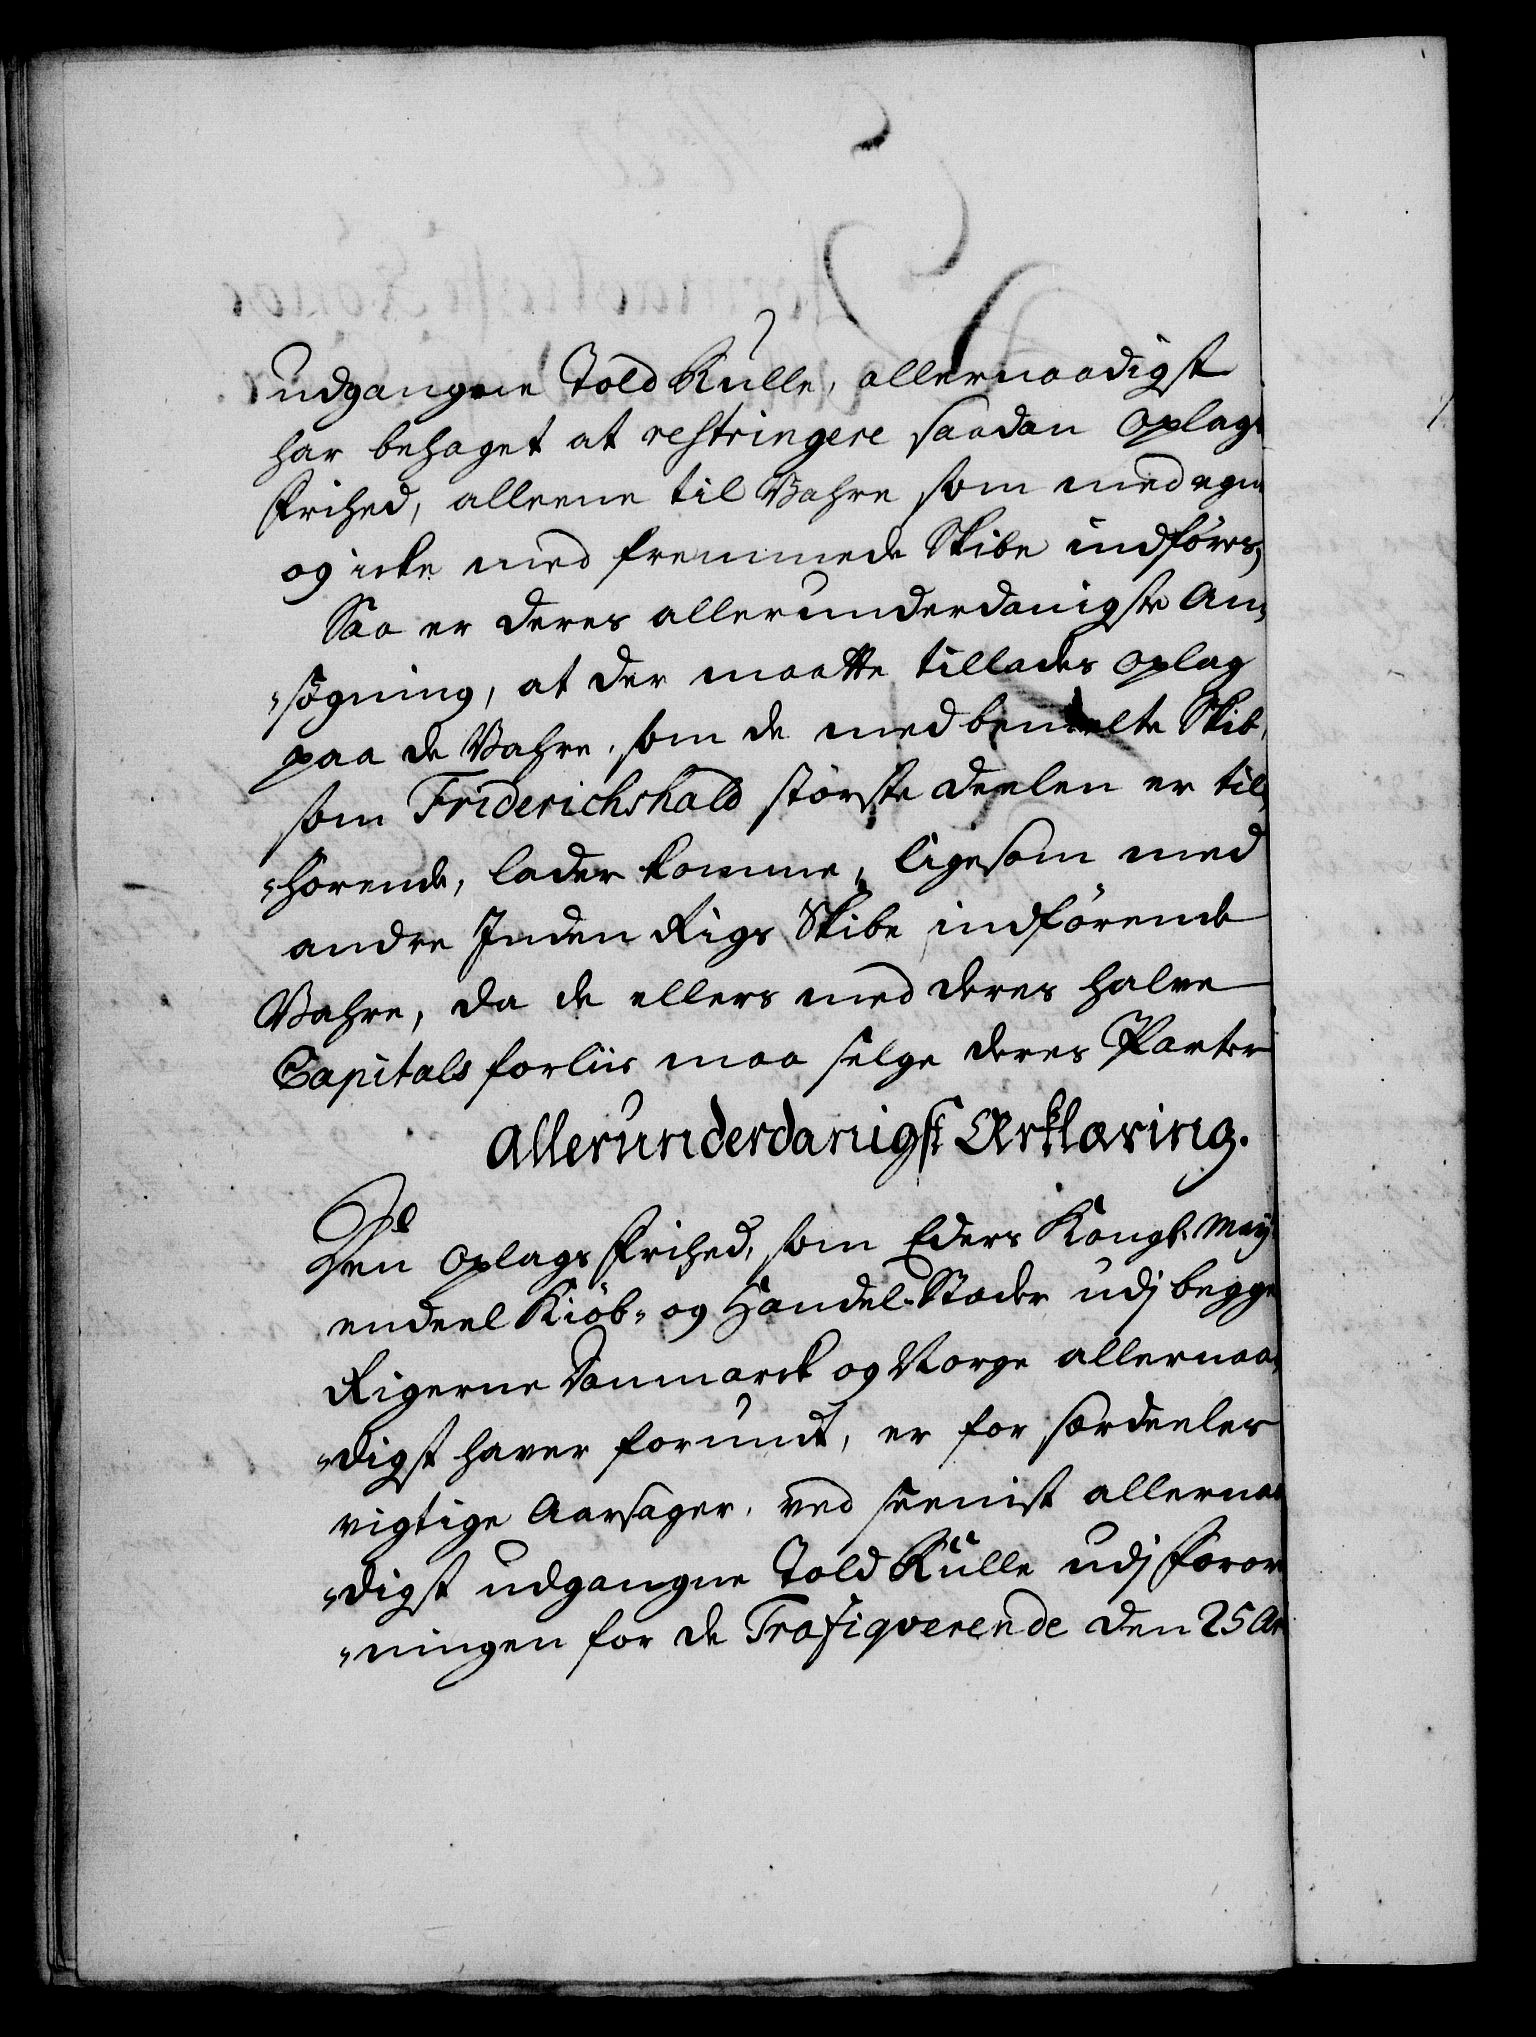 udgangne Told Rulle, allernaadigst
har behaget at restringere saadan Oplags
Frihed, alleene til Vahre som med egne
og icke med fremmede Skibe indføres,
Saa er deres allerunderdanigste An„
„søgning, at der maatte tillades Oplag
paa de Vahre, som de med bemelte Skib,
som Friderichshald største deelen er til„
„hørende, lader komme, ligesom med
andre Inden Rigs Skibe indførende
Vahre, da de ellers med deres halve
Capitals forliis maa selge deres Parter
Allerunderdanigst Erklæring.
Den Oplags Frihed, som Eders Kongl. May:
endeel Kiöb- og Handel-Stæder udj begge
Rigerne Danmarck og Norge allernaa„
„digst haver forundt, er for særdeeles
vigtige Aarsager, ved seenist allernaa
„digst udgangne Told Rulle udj Foror
„ningen for de Trafiqverende den 25 Ar